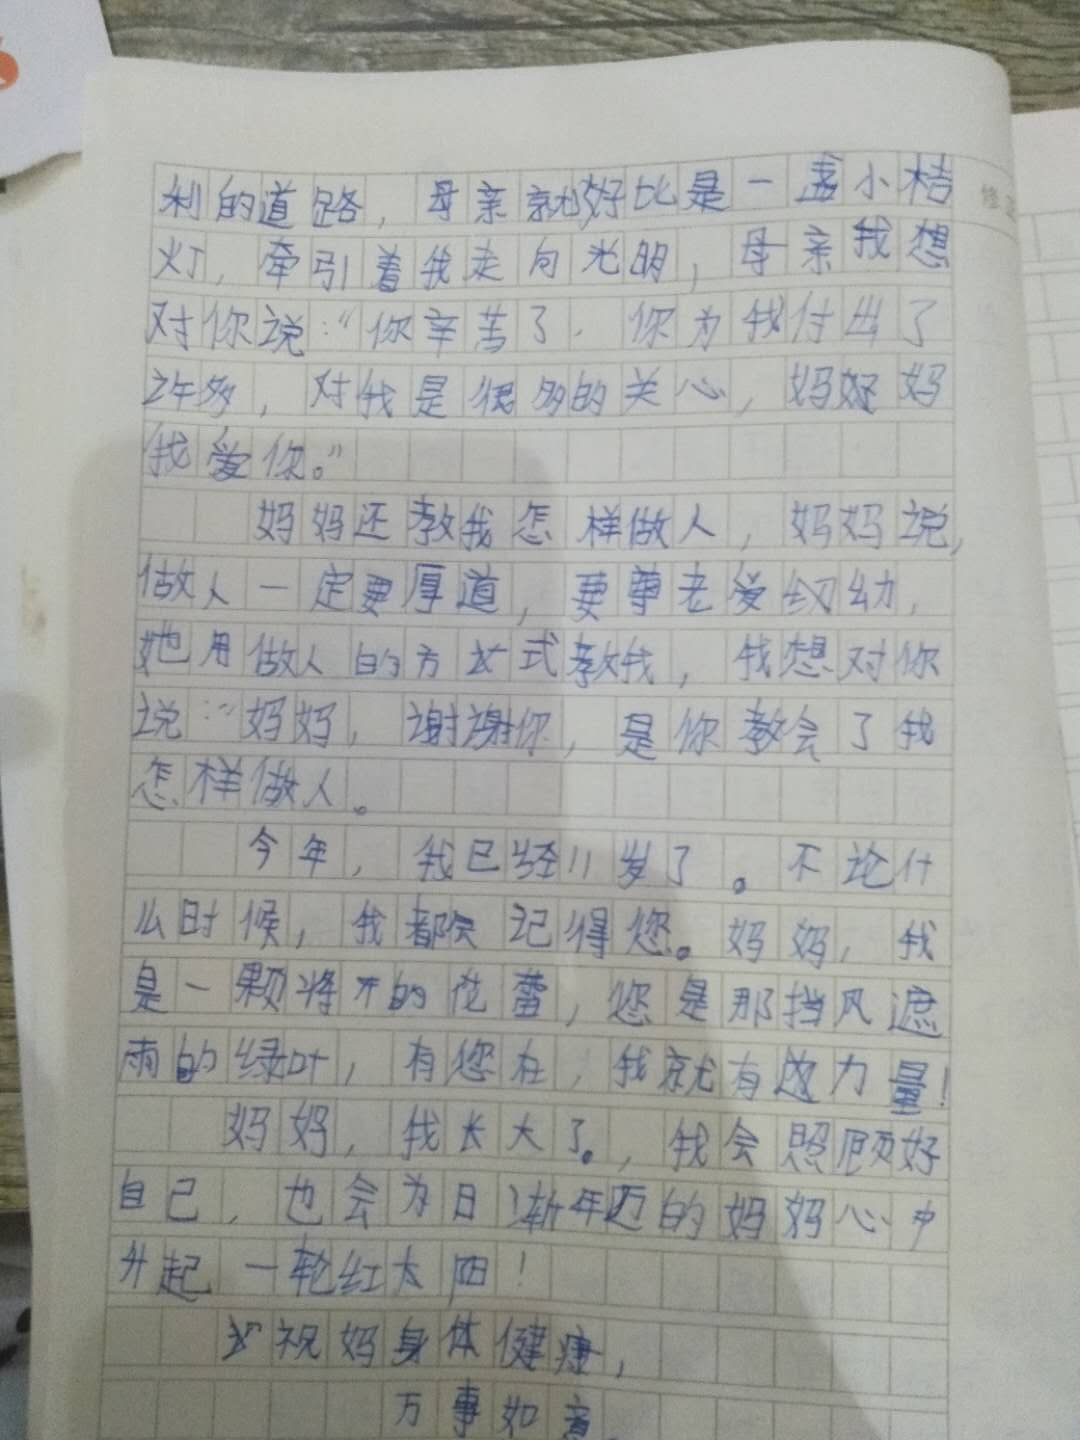 利的道路，母亲就好比是一盏小桔
灯，牵引着我走向光明，母亲我想
对你说：“你辛苦了．你为我付出了
许多，对我是很多的关心，妈妈
我爱你。”
妈妈还教我怎样做人，妈妈说，
做人一定要厚道，要尊老爱幼，
她用做人的方式教我，我想对你
说：“妈妈，谢谢你，是你教会了我
怎样做人。
今年，我已经11岁了。不论什
么时候，我都会记得您。妈妈，我
是一颗将开的花蕾，您是那挡风遮
雨的绿叶，有您在，我就有力量！
妈妈，我长大了。，我会照顾好
自己，也会为日渐年迈的妈妈心中
升起一轮红太阳！
祝妈身体健康，
万事如意，